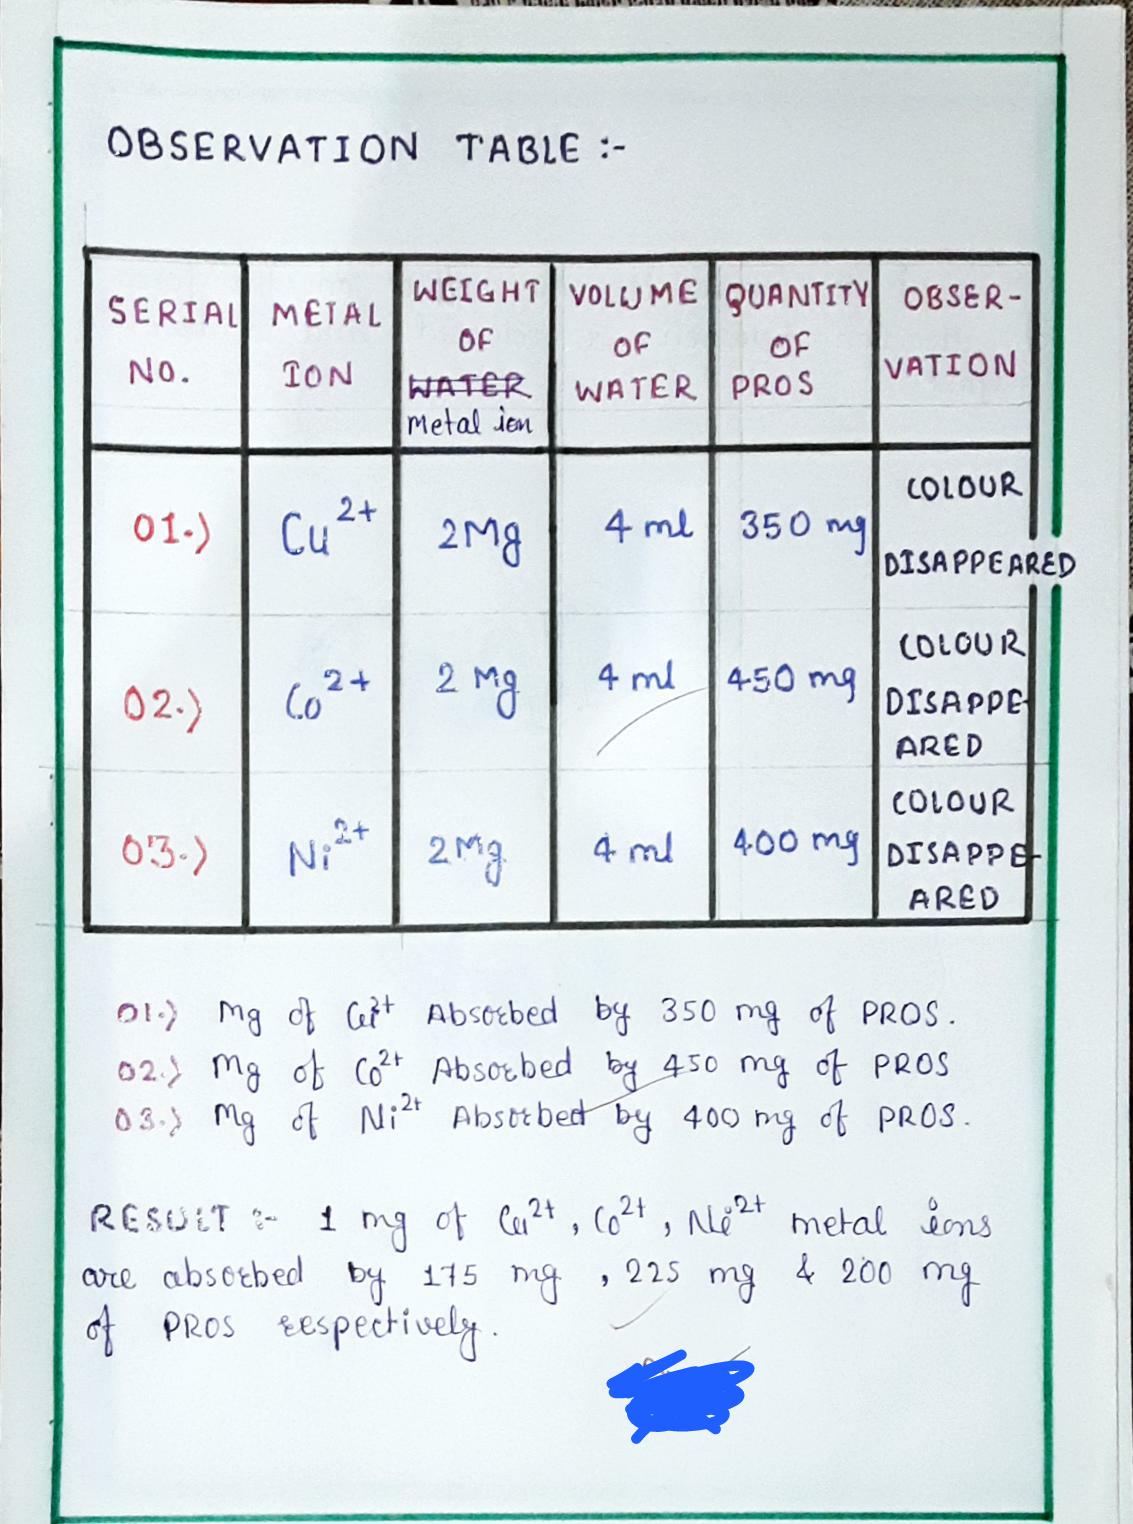 OBSERVATION TABLE :-
SERIAL NO.
METAL ION
WEIGHT OF WATER metal ion
VOLUME OF WATER
QUANTITY OF PROS
OBSER-VATION
01.) Cu2+ 2Mg 4 ml 350 mg COLOUR DISAPPEARED
02.) Co2+ 2 Mg 4 ml 450 mg COLOUR DISAPPE-ARED
03.) Ni2+ 2Mg 4 ml 400 mg COLOUR DISAPPE-ARED
01.) Mg of Cu2+ Absorbed by 350 mg of PROS.
02.) Mg of Co2+ Absorbed by 450 mg of PROS
03.) Mg of Ni2+ Absorbed by 400 mg of PROS.
RESULT :- 1 mg of Cu2+, Co2+, Ni2+ metal ions
are absorbed by 175 mg , 225 mg & 200 mg
of PROS respectively.